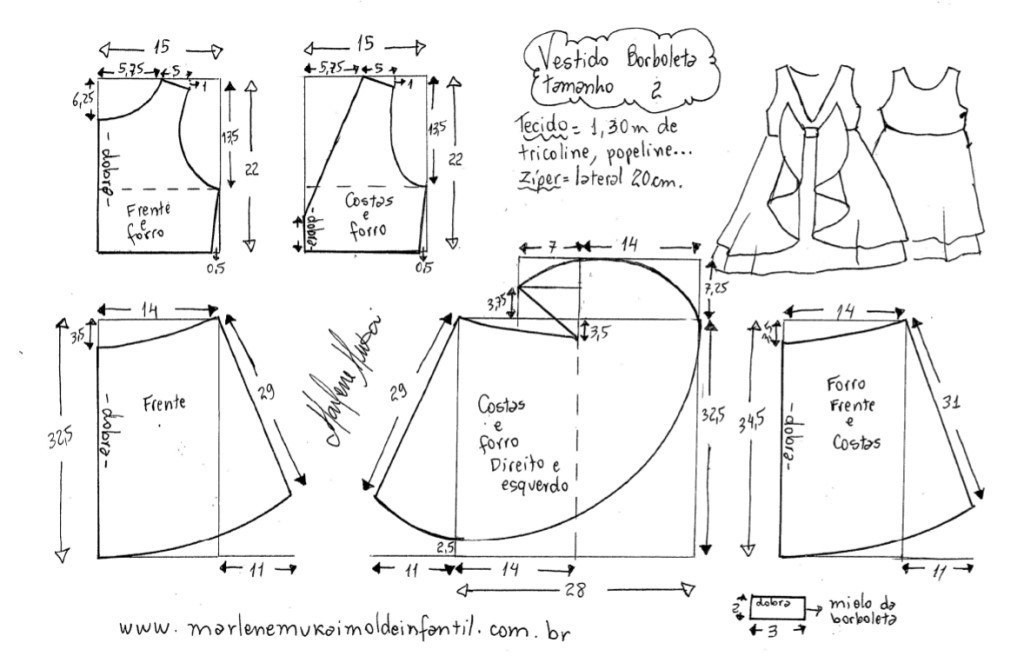 Vestido Borboleta
tamanho 2
Tecido = 1,30m de
tricoline, popeline...
Zíper = lateral 20cm.
15
5,75
5
1
6,25
13,5
22
- dobra -
Frente
e
forro
0,5
15
5,75
5
1
13,5
22
- dobra -
Costas
e
forro
0,5
14
3,5
32,5
- dobra -
Frente
29
11
Marlene Mukai
7
14
7,25
3,75
3,5
29
32,5
Costas
e
forro
Direito e
esquerdo
2,5
11
14
28
14
34,5
- dobra -
Forro
Frente
e
Costas
31
11
2
dobra
3
miolo da
borboleta
www.marlenemukaimoldeinfantil.com.br